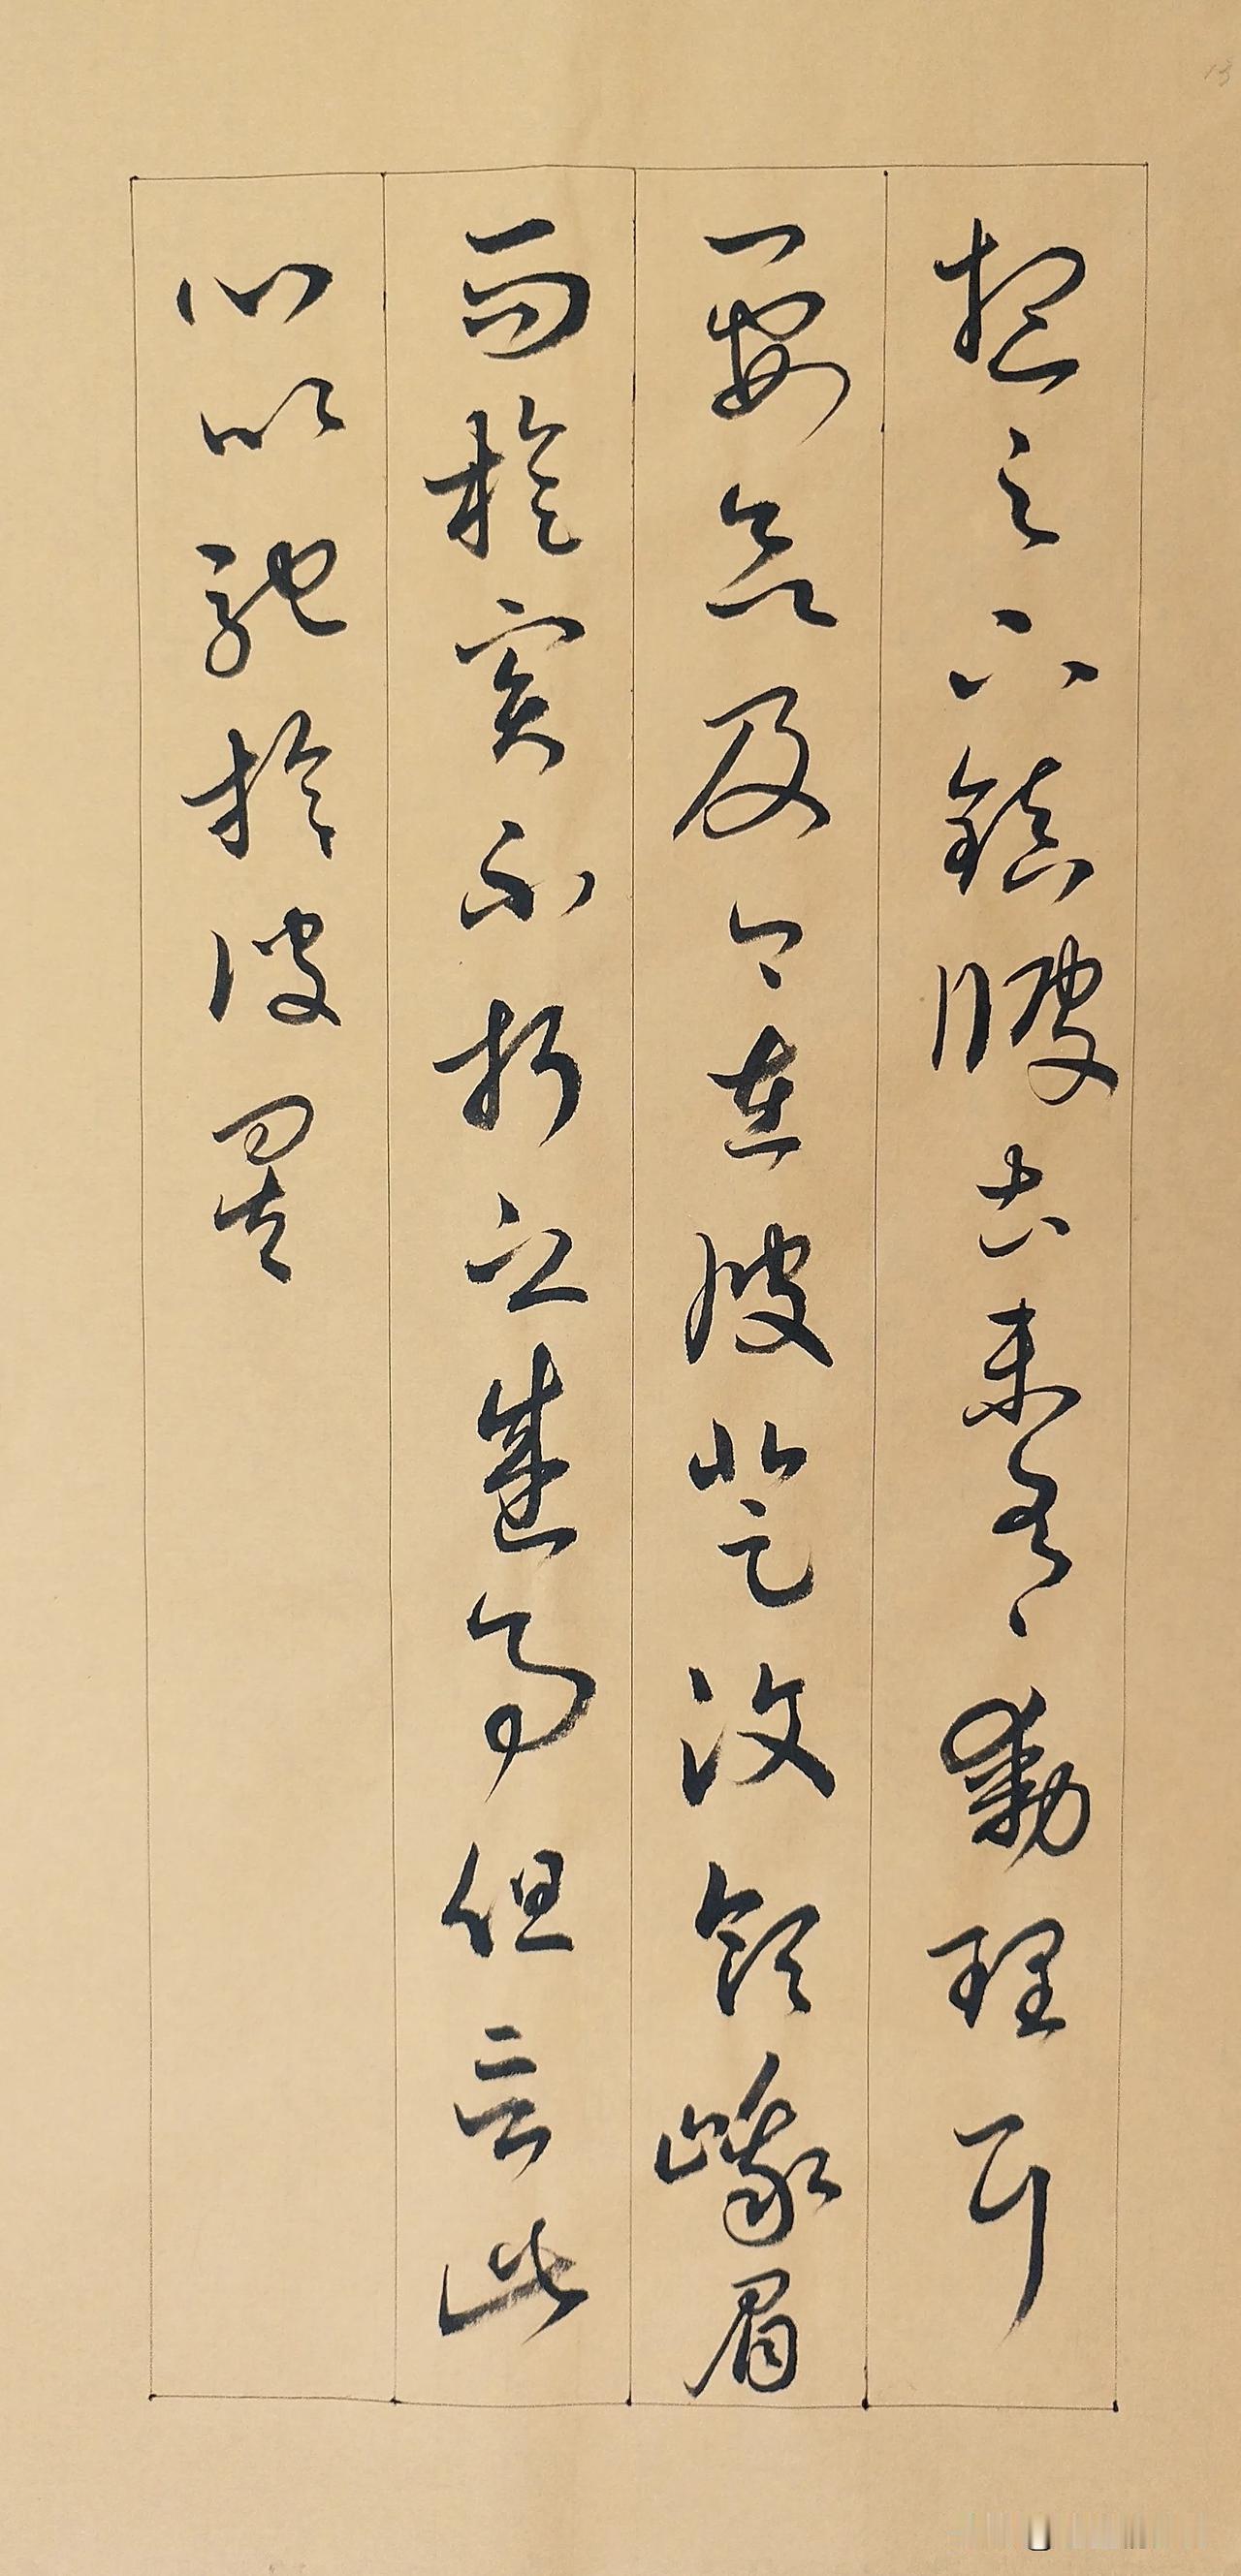 想足下鎮彼土未有動理耳
要欲及卿在彼登汶領峨眉
而旋實不朽之盛事但言此
心以馳於彼矣